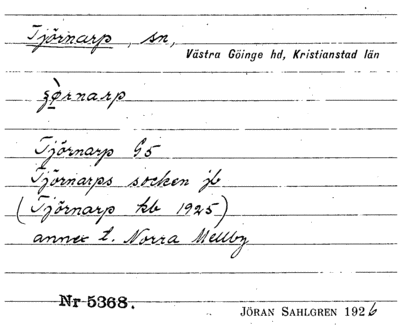 Tjörnarp, sn,
Västra Göinge hd, Kristianstad län
Tjörnarp G5
Tjörnarps socken jb
(Tjörnarp kb 1925)
annex t. Norra Mellby
Nr 5368.
JÖRAN SAHLGREN 1926